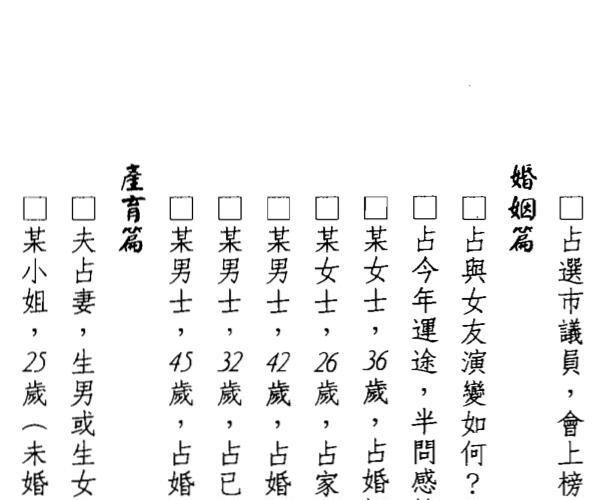 □占選市議員，會上榜
婚姻篇
□占與女友演變如何？
□占今年運途，半問感
□某女士，36歲，占婚
□某女士，26歲，占家
□某男士，42歲，占婚
□某男士，32歲，占已
□某男士，45歲，占婚
產育篇
□夫占妻，生男或生女
□某小姐，25歲（未婚